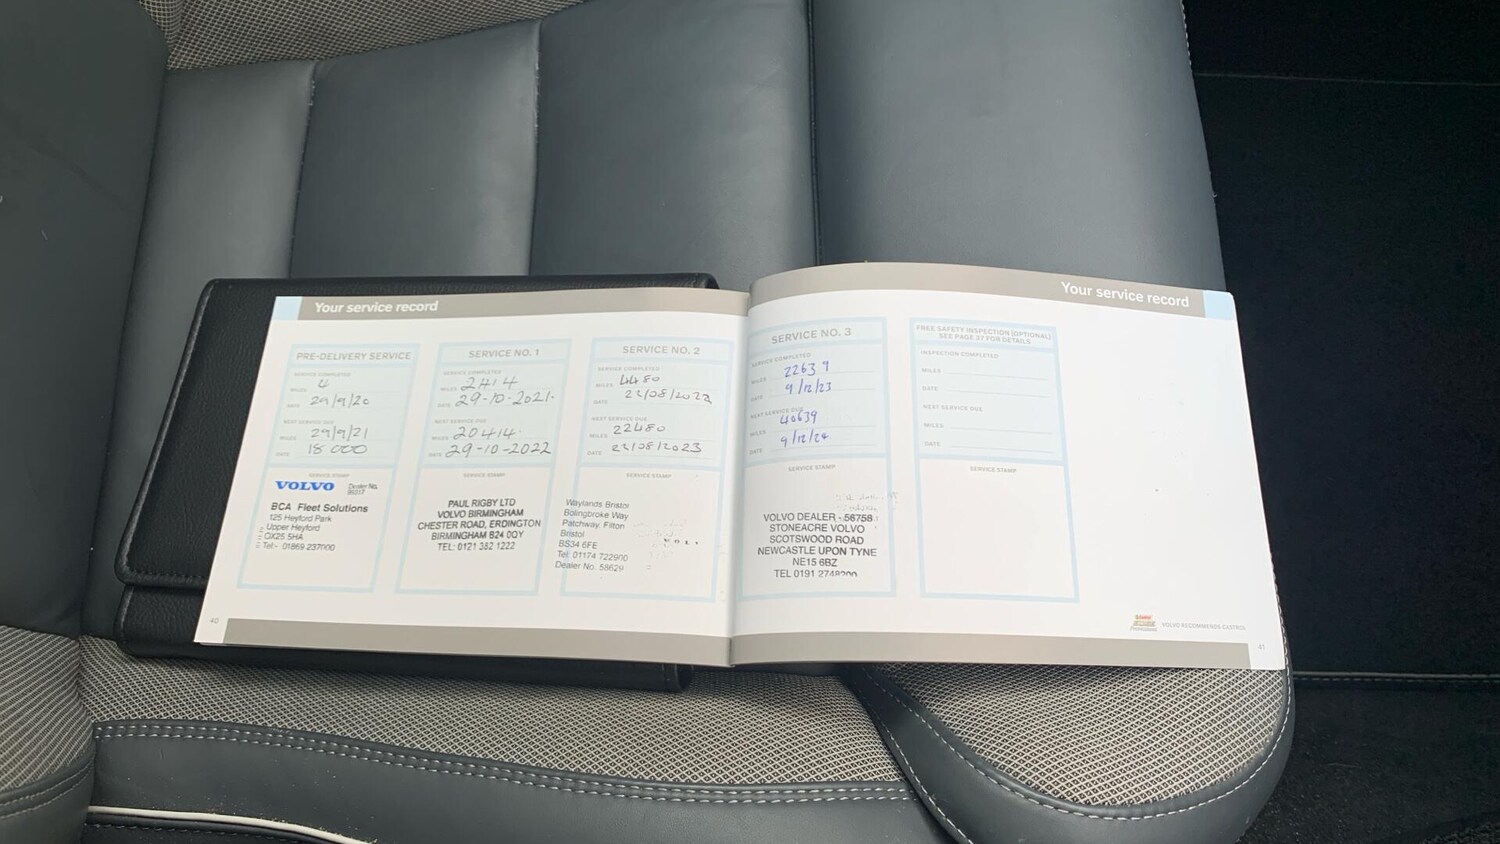 Your service record
PRE-DELIVERY SERVICE
SERVICE COMPLETED
MILES 4
DATE 29/9/20
NEXT SERVICE DUE
MILES 29/9/21
DATE 18000
SERVICE STAMP
VOLVO Dealer No.
BCA Fleet Solutions
125 Heyford Park
Upper Heyford
OX25 5HA
Tel:- 01869 237000
SERVICE NO. 1
SERVICE COMPLETED
MILES 2414
DATE 29-10-2021.
NEXT SERVICE DUE
MILES 20414
DATE 29-10-2022
SERVICE STAMP
PAUL RIGBY LTD
VOLVO BIRMINGHAM
CHESTER ROAD, ERDINGTON
BIRMINGHAM B24 0QY
TEL: 0121 382 1222
SERVICE NO. 2
SERVICE COMPLETED
MILES 4480
DATE 22/08/2022
NEXT SERVICE DUE
MILES 22480
DATE 22/08/2023
SERVICE STAMP
Waylands Bristol
Bolingbroke Way
Patchway, Filton
Bristol
BS34 6FE
Tel: 01174 722900
Dealer No. 58629
40
Your service record
SERVICE NO. 3
SERVICE COMPLETED
MILES 22639
DATE 9/12/23
NEXT SERVICE DUE
MILES 40639
DATE 9/12/24
SERVICE STAMP
VOLVO DEALER - 56758
STONEACRE VOLVO
SCOTSWOOD ROAD
NEWCASTLE UPON TYNE
NE15 6BZ
TEL 0191 2748200
FREE SAFETY INSPECTION (OPTIONAL)
SEE PAGE 37 FOR DETAILS
INSPECTION COMPLETED
MILES
DATE
NEXT SERVICE DUE
MILES
DATE
SERVICE STAMP
Castrol
VOLVO RECOMMENDS CASTROL
41